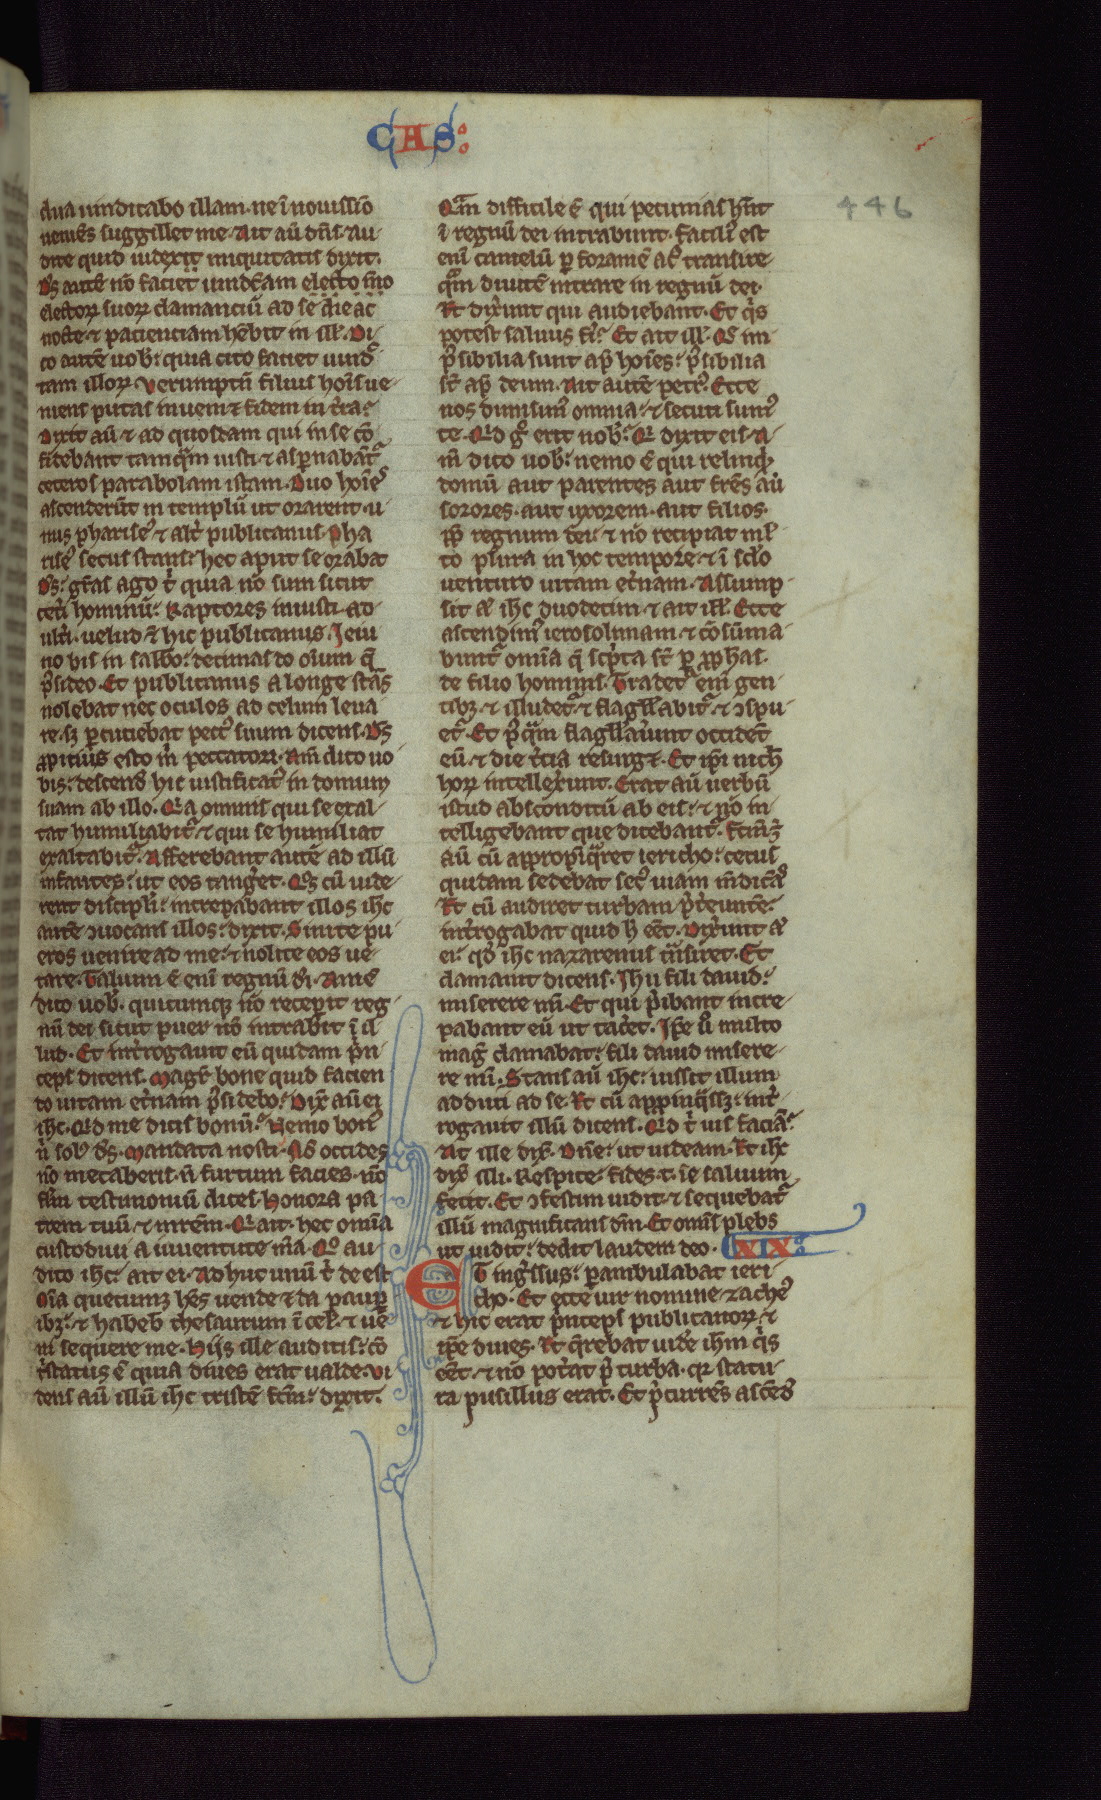 CAS:
446
dua uindicabo illam. ne ī nouissīo
ueniēs suggillet me. Ait aū dn̄s. Au-
dite quid iudex iniquitatis dixit.
Ds̄ autē nō faciet
electoꝝ suoꝝ clamanciū ad se die ac
nocte. ⁊ pacienciam hēbit in ill̄. Di-
co autē uob̄. quia cito faciet uind̄
tam illoꝝ. Verumptn̄ filius hoīs ue-
niens putas inueniet fidem in tr̄a.
Dixit aū ⁊ ad quosdam qui in se cō
fidebant tamq̄m iusti. ⁊ asp̱nabāt᷑
ceteros parabolam istam. Duo hoīes
ascenderūt in templū ut orarent. u-
nus phariseꝰ ⁊ alt̄ publicanus. Pha
riseꝰ secus stans: hec aput se orabat
Ds̄. gr̄as ago t̄ quia nō sum sicut
cet̄i hominū. Raptores iniusti. ad-
ult̄i. uelud ⁊ hic publicanus. Ieiu
no bis in sabb̄o. decimas do oīum q̄
p̄sideo. Et publicanus a longe stās
nolebat nec oculos ad celum leua
re. sꝫ p̱cutiebat pectꝰ suum dicens. Ds̄
ꝓpitius esto m̄ peccatori. Am̄ dico uo
bis: descend̄ hic iustificatꝰ in domum
suam ab illo. Q̄a omnis qui se exal-
tat humiliabit᷑ ⁊ qui se humiliat
exaltabit᷑. Afferebant autē ad illū
infantes: ut eos tang̱et. Qd̄ cū uide-
rent discipl̄i: increpabant illos ih̄c
autē ꝯuocans illos: dixit. Sinite pu-
eros uenire ad me. ⁊ nolite eos ue-
tare. Talium ē eni regnū dī. Amē
dico uob̄. quicumqꝫ nō recep̱it reg-
nū dei sicut puer nō intrabit ī il
lud. Et int̄rogauit eū quidam p̄n-
ceps dicens. Magr̄ bone quid facien
do uitam et̄nam p̄sidebo. Dix̄ aū ei
ih̄c. Qd̄ me dicis bonū. Nemo bonꝰ
n̄ solꝰ ds̄. Mandata nosti. Nō occides
nō mecaberis. n̄ furtum facies. nō
flm̄ testimoniū dices. Honora pa-
trem tuū ⁊ mrēm. Qi ait. hec omīa
custodiui a iuuentute m̄a. Qo au-
dito ih̄c. ait ei. Adhuc unū t̄ deest
Oīa quecumqꝫ hēs uende ⁊ da paup̱
ibꝫ. ⁊ habeb̄ thesaurum ī cel̄. ⁊ uē
ni sequere me. Hijs ille auditis: cō
t̄status ē quia diues erat ualde. Vi
dens aū illū ih̄c tristē fcm̄: dixit.
Q̄m difficile ē qui pecunias hn̄t
ī regnū dei intrabunt. facilꝰ est
eni camelū p̱ foramē acꝰ transire
q̄m diuitē intrare in regnū dei.
Et dix̄unt qui audiebant. Et q̄s
potest saluus fi̓. Et ait ill̄. Q̄ im
p̄sibilia sunt ap̄ hoīes: p̄sibilia
st̄ ap̄ deum. Ait autē petrꝰ. Ecce
nos dimisimꝰ omnia ⁊ secuti sumꝰ
te. Qd̄ g̊ erit nob̄. Qi dixit eis. A-
m̄ dico uob̄. nemo ē qui relinqꝫ
domū aut parentes aut frēs aū
sorores. aut uxorem. aut filios.
ꝓp̄ regnum dei. ⁊ nō recipiat ml̄
to plura in hoc tempore. ⁊ ī sclo
venturo uitam et̄nam. Assump-
sit aū ih̄c duodecim. ⁊ ait ill̄. Ecce
ascendimꝰ ierosolimam. ⁊ cōsūma-
bunt᷑ omīa q̄ scp̄ta st̄ p̱ ꝓphas.
de filio hominis. Tradet᷑ eni gen
tibꝫ. ⁊ illudet᷑ ⁊ flagll̄abit᷑. ⁊ ꝯspu-
et᷑. Et p̄q̄m flagll̄au̓int occidēt
eū. ⁊ die t̄cia resurg̱t. Et ip̄i nich̄
hoꝝ intellex̄unt. Erat aū uerbū
istud absconditū ab eis. ⁊ nō in-
telligebant que dicebant᷑. fcm̄ ē
aū cū appropīq̄ret iericho: cecus
quidam sedebat secꝰ uiam m̄dicās
Et cū audiret turbam p̄t̄euntē:
int̄rogabat quid h̄ eet̄. Dix̄unt aū
ei: qd̄ ih̄c nazarenus tn̄siret. Et
clamauit dicens. Ih̄u fili dauid:
miserere mī. Et qui p̄ibant incre-
pabant eū ut tac̄et. Ip̄e u̓ multo
mag̓ clamabat. fili dauid misere-
re mī. Stans aū ih̄c: iussit illum
adduci ad se. Et cū appīnq̄ss̄: int̄-
rogauit illū dicens. Qd̄ t̄ uis faciā.
At ille dix̄. Dn̄e: ut uideam. Et ih̄c
dix̄ illi. Respice. fides. t. te saluum
fecit. Et ꝯfestim uidit. ⁊ sequebat᷑
illū magnificans dm̄. Et omīs plebs
ut uidit: dedit laudem deo. CXIX:
ET ing̱ssus: p̱ambulabat ieri-
cho. Et ecce uir nomine zacheꝰ
⁊ hic erat p̄nceps publicanoꝝ ⁊
ip̄e diues. Et q̄rebat uid̄e ih̄m q̄s
eet̄. ⁊ nō pot̄at p̄ turba. qr̄ statu-
ra pusillus erat. Et p̄currēs ascēd̄